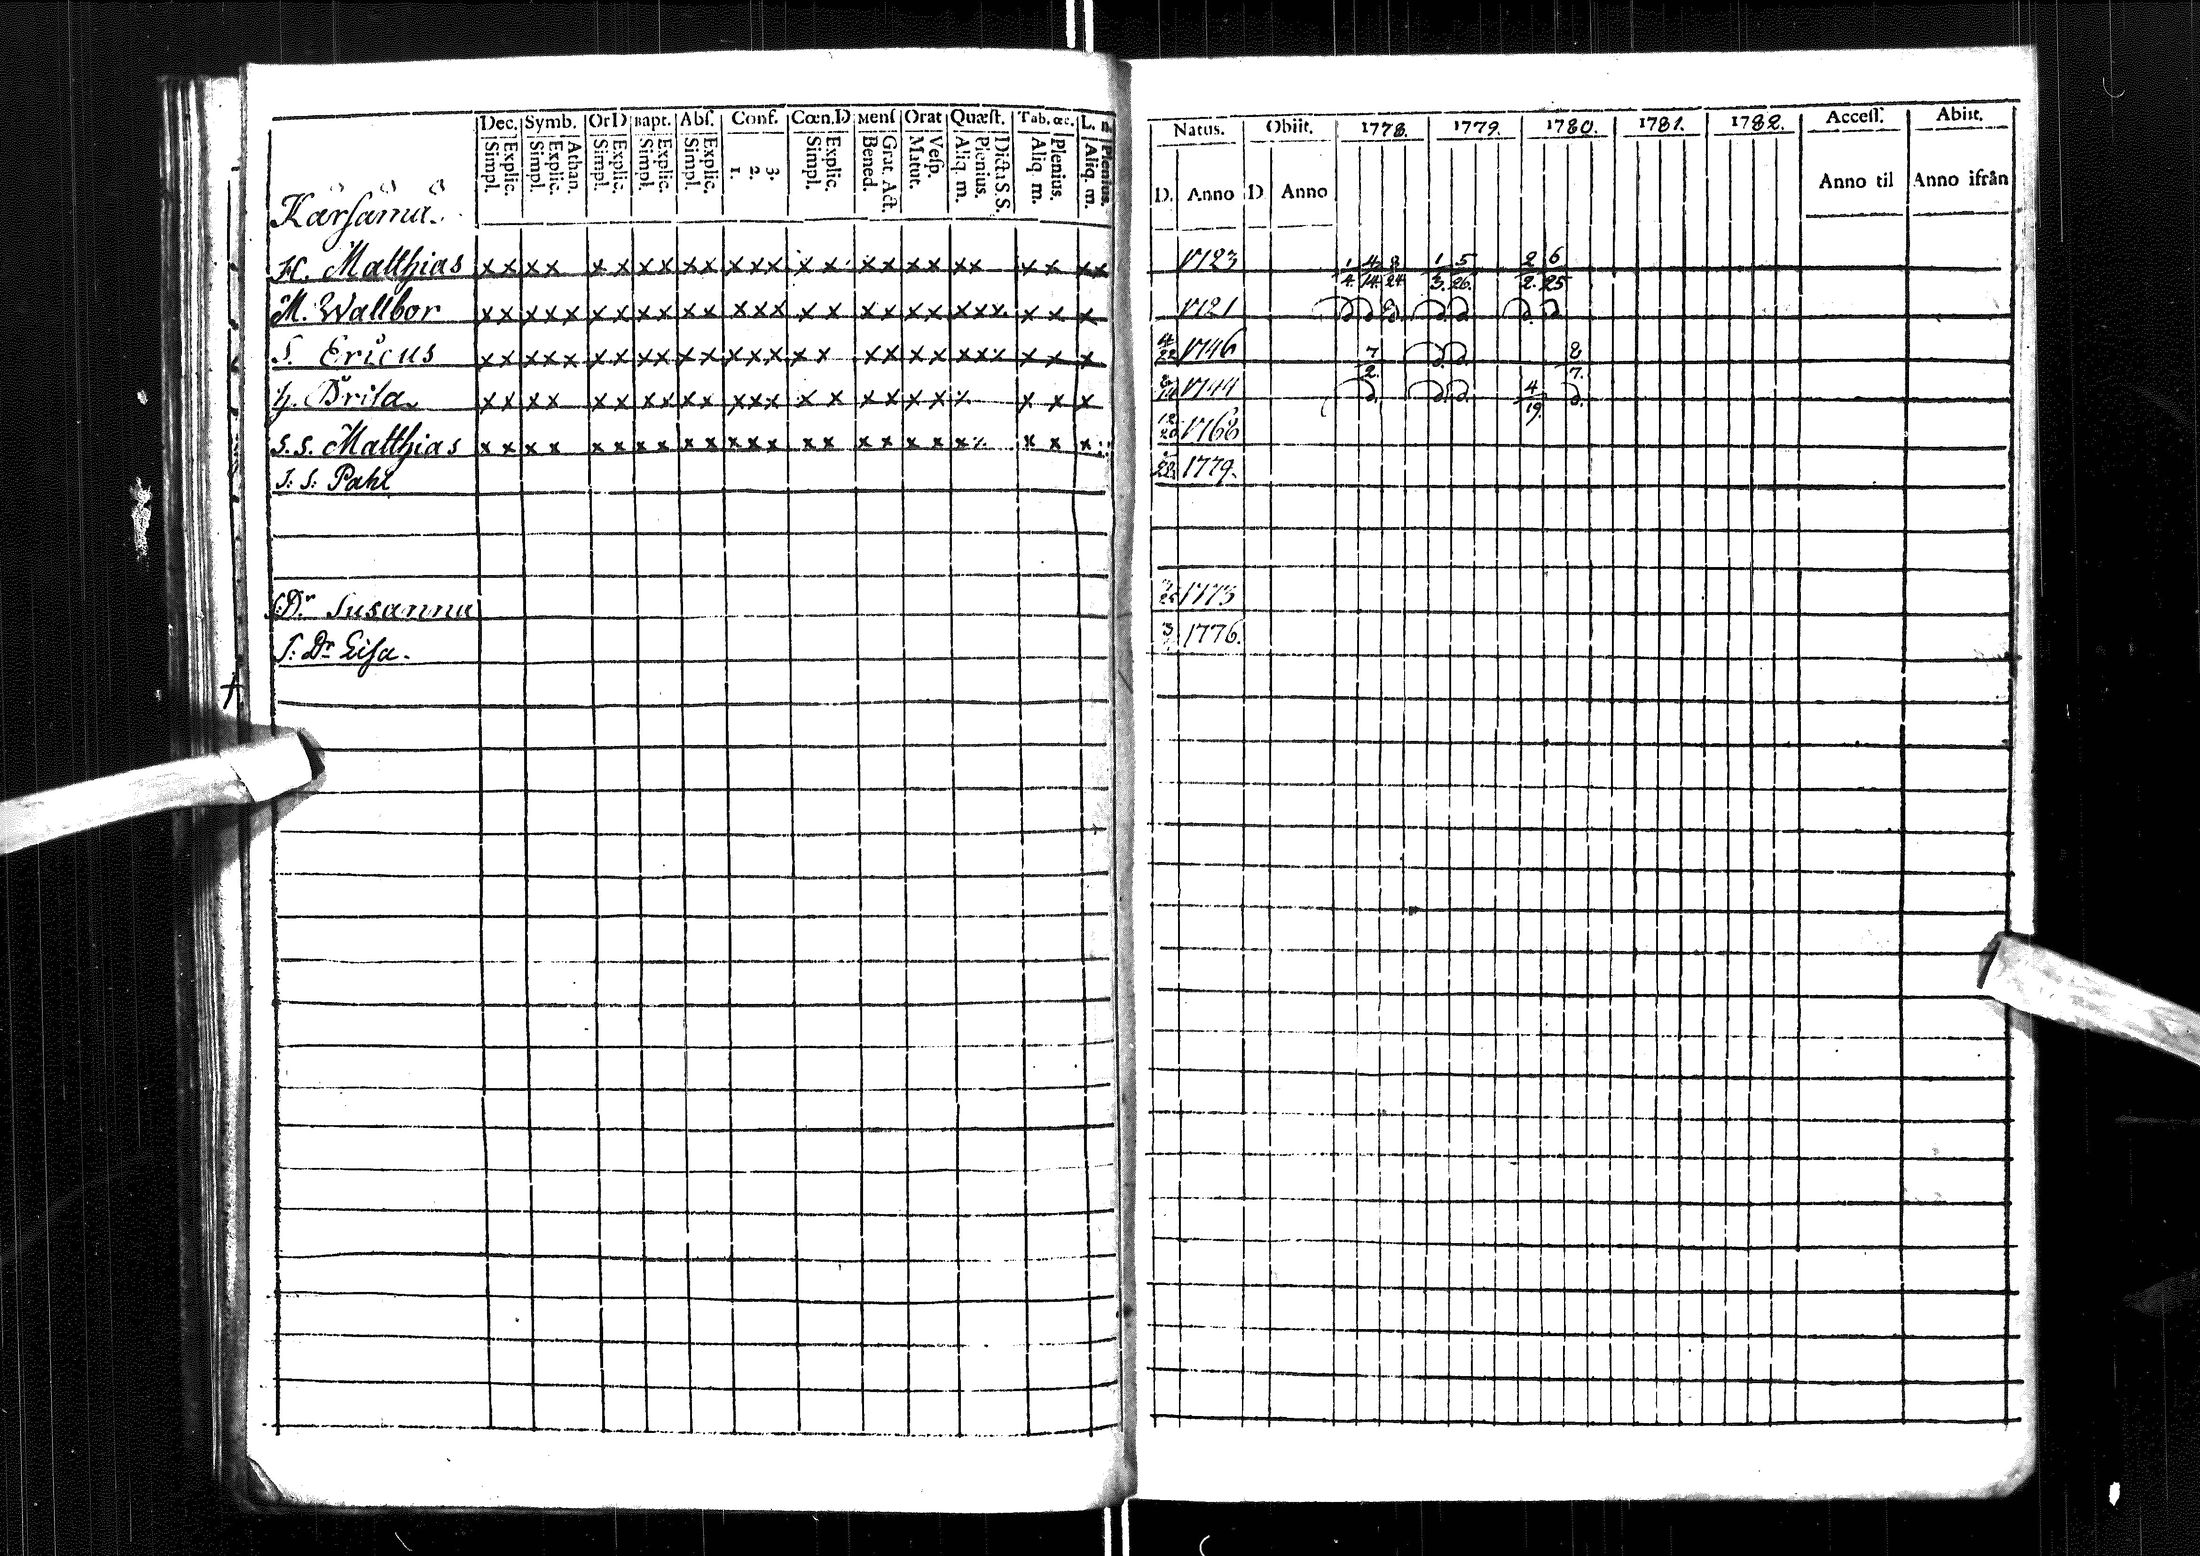 Dec. Symb. OrD Bapt. Abs. Conf. Cœn.D Mens Orat Quæst. Tab. œc. L. n.
Simpl. Explic. Simpl. Explic. Athan. Simpl. Explic. Simpl. Explic. Simpl. Explic. 1. 2. 3. Simpl. Explic. Bened. Grat. Act. Matut. Vesp. Aliq. m. Plenius. Dicta S.S. Aliq. m. Plenius. Aliq. m. Plenius.
H. Matthias x x x x x x x x x x x x x x x x x x x x x x x x x
M. Wallbor x x x x x x x x x x x x x x x x x x x x x x x x x x
S. Ericus x x x x x x x x x x x x x x x x x x x x x x x x x
h. Brita x x x x x x x x x x x x x x x x x x x x x
s.s. Matthias x x x x x x x x x x x x x x x x x x x x x x
s. s. Pahl
s. Dr Susanna
s. Dr Lisa.
Natus. Obiit. 1778. 1779. 1780. 1781. 1782. Access. Abiit.
D. Anno D Anno Anno til Anno ifrån
1723 1/4 4/14 8/24 1/3. 5/26. 2/2. 6/25
1721
1746 7/2. 8/7.
1744 4/19.
1768
1779.
1773
3 1776.